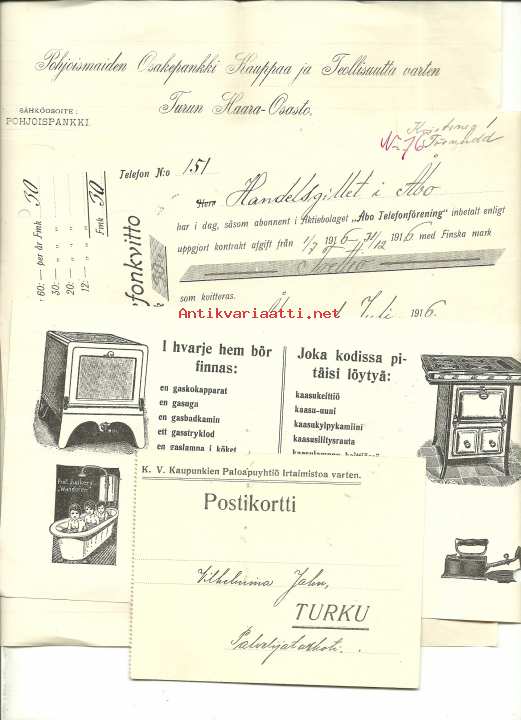 Pohjoismaiden Osakepankki Kauppaa ja Teollisuutta varten
Turun Haara-Osasto.
SÄHKÖOSOITE:
POHJOISPANKKI.
No 76
Telefon N:o 151
Herr Handelsgillet i Åbo
har i dag, såsom abonnent i Aktiebolaget „Åbo Telefonförening" inbetalt enligt
uppgjort kontrakt afgift från 1/7 1916–31/12 1916 med Finska mark
Trettio
som kvitteras. Åbo d Juli 1916.
fonkvitto
60: — per år Fmk 30
30: — „ „
20: — „ „
12: — „ „ Fmk 30
Antikvariaatti.net
I hvarje hem bör
finnas:
en gaskokapparat
en gasugn
en gasbadkamin
ett gasstryklod
en gaslampa i köket
Joka kodissa pi-
täisi löytyä:
kaasukeittiö
kaasu-uuni
kaasukylpykamiini
kaasusilitysrauta
Prof. Junkers
"Wandofen"
K. V. Kaupunkien Paloapuyhtiö Irtaimistoa varten.
Postikortti
Vilhelmina Jahn,
TURKU
Palvelijatarkoti.